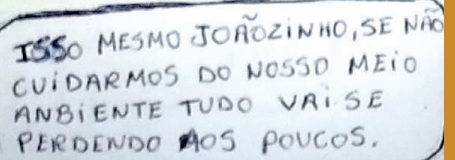 ISSO MESMO JOÃOZINHO, SE NÃO
CUIDARMOS DO NOSSO MEIO
ANBIENTE TUDO VAI SE
PERDENDO AOS POUCOS.